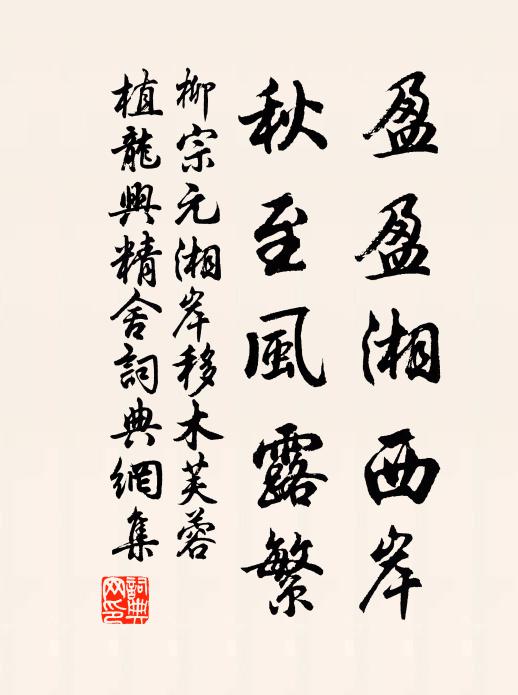 盈盈湘西岸
秋至風露繁
柳宗元湘岸移木芙蓉
植龍興精舍詞典網集
詞典
网印